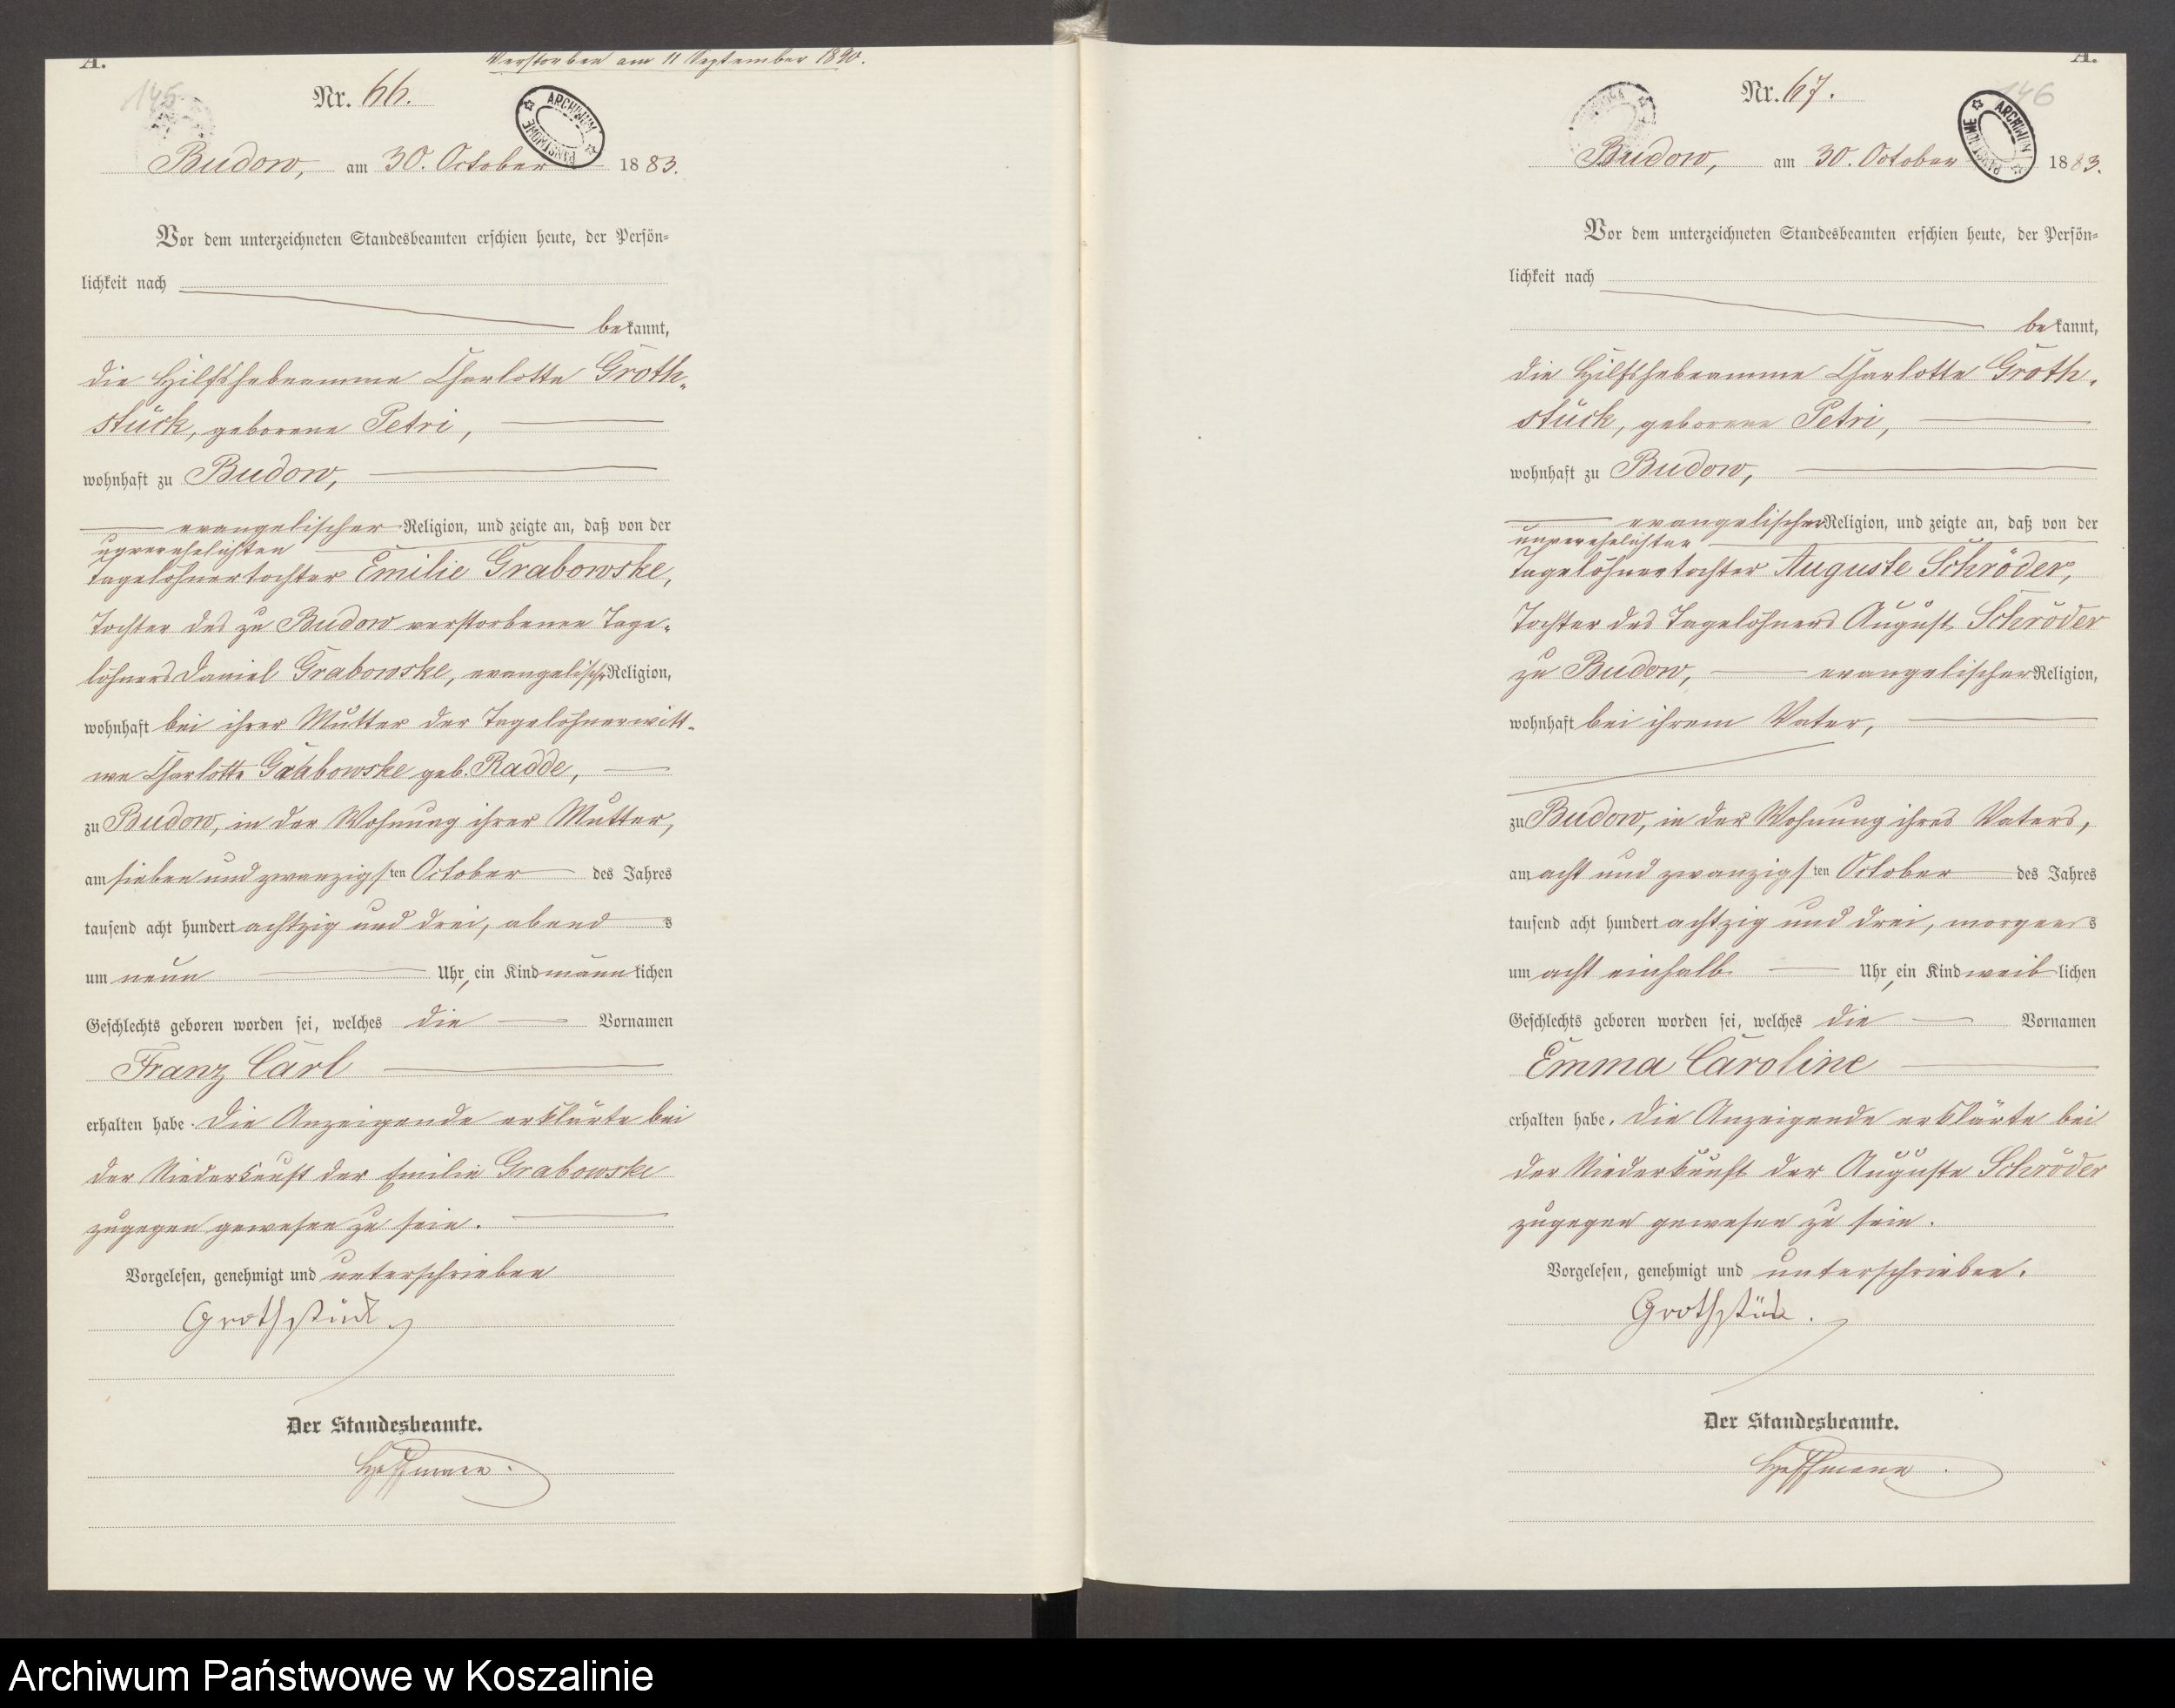 A.
Verstorben am 11 September 1890.
145
Nr. 66.
ARCHIWUM PAŃSTWOWE
Budow, am 30. October 1883.
Vor dem unterzeichneten Standesbeamten erschien heute, der Persön-
lichkeit nach
bekannt,
die Hilfshebeamme Charlotte Groth-
stück, geborene Petri,
wohnhaft zu Budow,
evangelischer Religion, und zeigte an, daß von der
unverehelichten
Tagelöhnertochter Emilie Grabowske,
Tochter des zu Budow verstorbenen Tage-
löhners Daniel Grabowske, evangelischr Religion,
wohnhaft bei ihrer Mutter der Tagelöhnerwitt-
we Charlotte Grabowske geb. Radde,
zu Budow, in der Wohnung ihrer Mutter,
am sieben und zwanzigsten October des Jahres
tausend acht hundert achtzig und drei, abends
um neun Uhr, ein Kind männlichen
Geschlechts geboren worden sei, welches die Vornamen
Franz Carl
erhalten habe. Die Anzeigende erklärte bei
der Niederkunft der Emilie Grabowske
zugegen gewesen zu sein.
Vorgelesen, genehmigt und unterschrieben
Grothstück
Der Standesbeamte.
Hoffmann.
A.
146
Nr. 67.
ARCHIWUM PAŃSTWOWE
Budow, am 30. October 1883.
Vor dem unterzeichneten Standesbeamten erschien heute, der Persön-
lichkeit nach
bekannt,
die Hilfshebeamme Charlotte Groth-
stück, geborene Petri,
wohnhaft zu Budow,
evangelischer Religion, und zeigte an, daß von der
unverehelichten
Tagelöhnertochter Auguste Schröder,
Tochter des Tagelöhners August Schröder
zu Budow, evangelischer Religion,
wohnhaft bei ihrem Vater,
zu Budow, in der Wohnung ihres Vaters,
am acht und zwanzigsten October des Jahres
tausend acht hundert achtzig und drei, morgens
um acht einhalb Uhr, ein Kind weiblichen
Geschlechts geboren worden sei, welches die Vornamen
Emma Caroline
erhalten habe. Die Anzeigende erklärte bei
der Niederkunft der Auguste Schröder
zugegen gewesen zu sein.
Vorgelesen, genehmigt und unterschrieben.
Grothstück.
Der Standesbeamte.
Hoffmann.
Archiwum Państwowe w Koszalinie